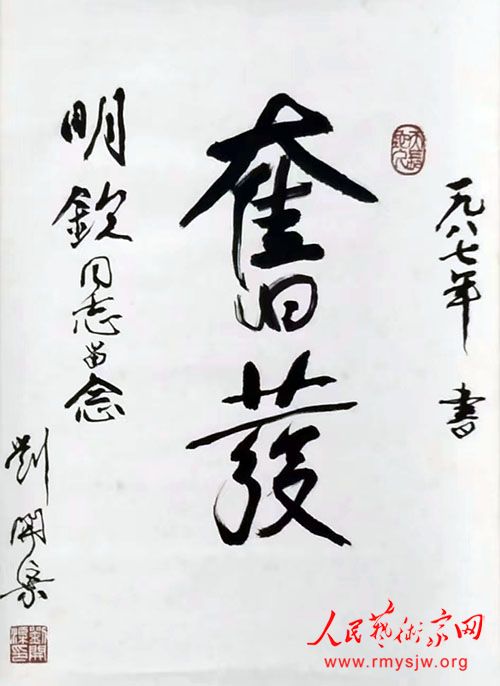 一九八七年 書
奮發
明欽同志留念
劉開渠
劉開渠印
人民藝術家网
www.rmysjw.org